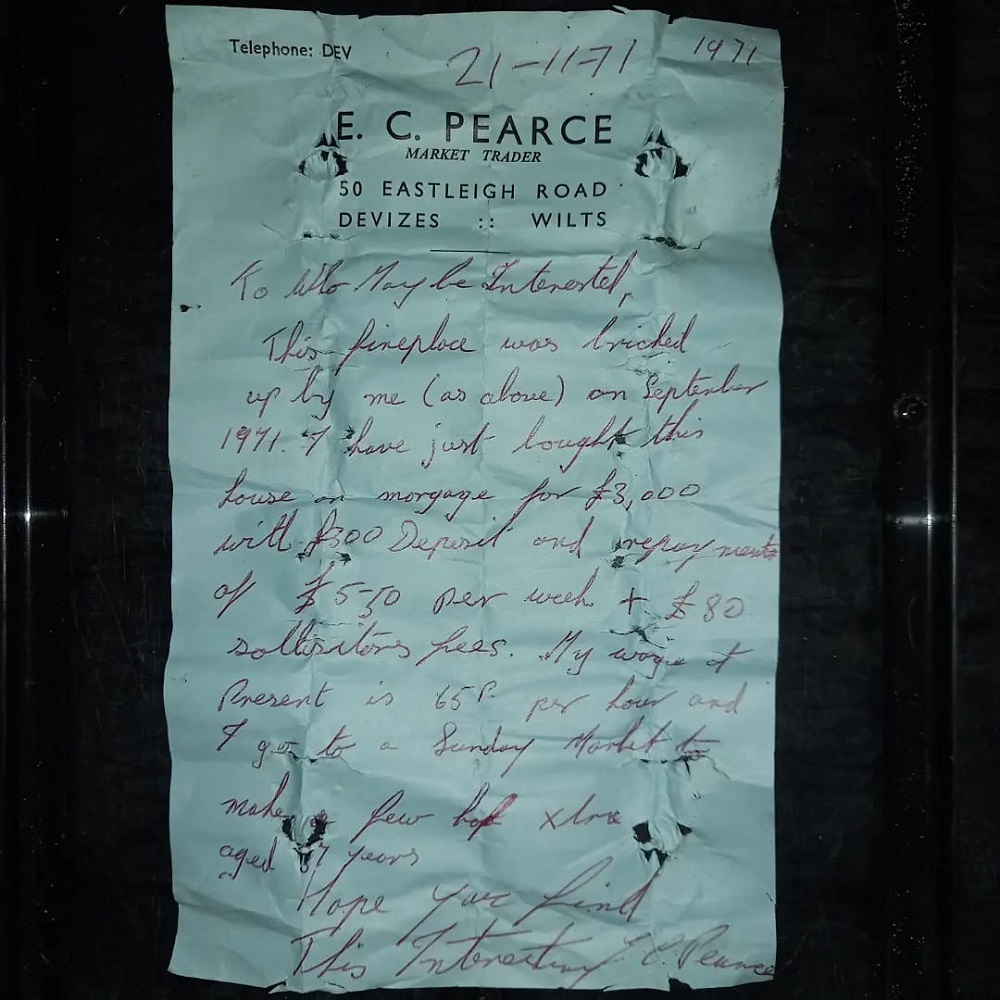 Telephone: DEV
21-11-71 1971
E. C. PEARCE
MARKET TRADER
50 EASTLEIGH ROAD
DEVIZES :: WILTS
To Who May be Interested,
This fireplace was bricked
up by me (as above) on September
1971. I have just bought this
house on morgage for £3,000
with £300 Deposit and repayments
of £5-50 per week + £80
sollisitors fees. My wage at
Present is 65P per hour and
I go to a Sunday Market to
make a few bob xtra
aged 7 years
Hope you find
This Interesting E C. Pearce